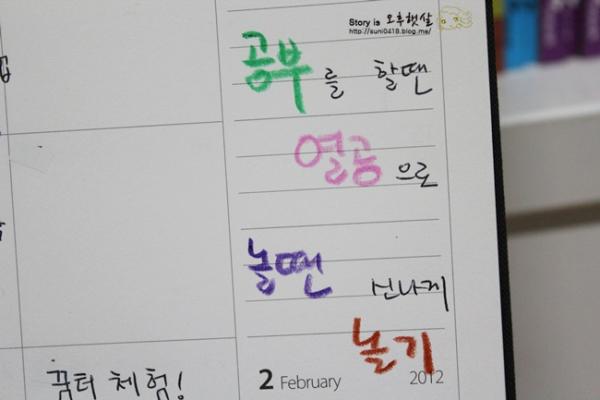 Story is 오후햇살
http://suni0418.blog.me/
공부를 할땐
열공으로
놀땐 신나게
놀기
꿈터 체험!
2 February 2012